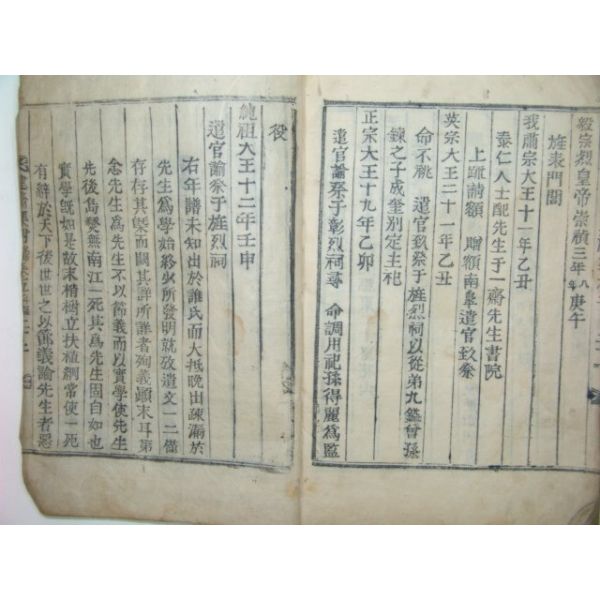 毅宗烈皇帝崇禎三年八年庚午
旌表門閭
我肅宗大王十一年乙丑
泰仁人士配先生于一齋先生書院
上疏請額 贈額南皐遣官致祭
英宗大王二十一年乙丑
命不祧 遣官致祭于旌烈祠以從弟九鎰曾孫
鍊之子成奎別定主祀
正宗大王十九年乙卯
遣官諭祭于彰烈祠尋 命調用祀孫得麗爲監
役
純祖大王十二年壬申
遣官諭祭于旌烈祠
右年譜未知出於誰氏而大抵晩出疎漏於
先生爲學始終少所發明就攷遺文一二僅
存存其槩而闕其詳詳者殉義顚末耳第
念先生爲先生不以節義而以實學使先生
先後島燹無南江一死其爲先生固自如也
實學旣如是故末梢樹立扶植綱常使一死
有辭於天下後世世之以節義論先生者惡